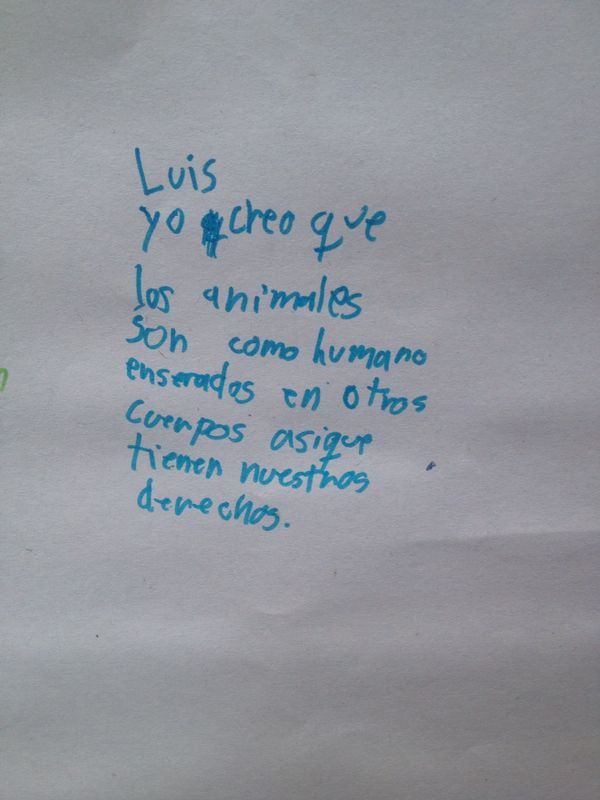 Luis
yo creo que
los animales
son como humano
enserados en otros
cuerpos asique
tienen nuestros
derechos.